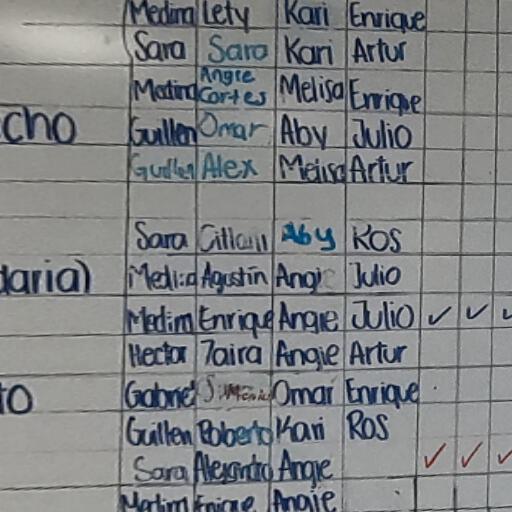 Medina Lety Kari Enrique
Sara Sara Kari Artur
Medina Angie Cortes Melisa Enrique
cho Guillen Omar Aby Julio
Guillen Alex Melisa Artur
Sara Aby ROS
daria) Agustin Angie Julio
Medina Enrique Angie Julio ✓ ✓ ✓
Hector Zaira Angie Artur
to Gabriel Omar Enrique
Guillen Roberto Kari ROS
Sara Alejandro Angie ✓ ✓ ✓
Medina Enrique Angie